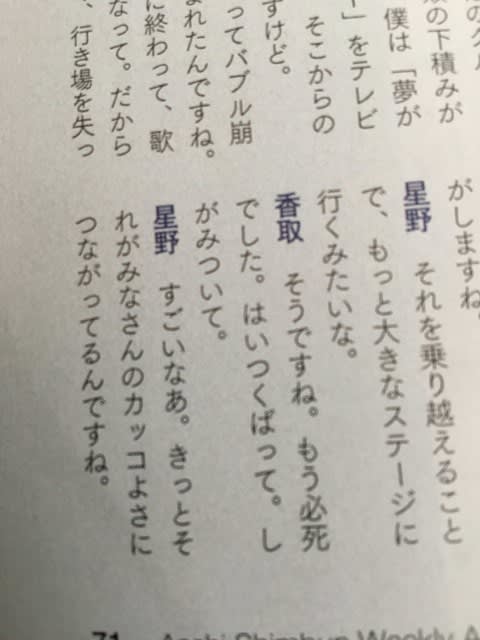 の下積みが
僕は「夢が
」をテレビ
そこからの
すけど。
ってバブル崩
れたんですね。
に終わって、歌
なって。だから
、行き場を失っ
がしますね。
星野　それを乗り越えること
で、もっと大きなステージに
行くみたいな。
香取　そうですね。もう必死
でした。はいつくばって。し
がみついて。
星野　すごいなあ。きっとそ
れがみなさんのカッコよさに
つながってるんですね。
71 Asahi Shimbun Weekly A